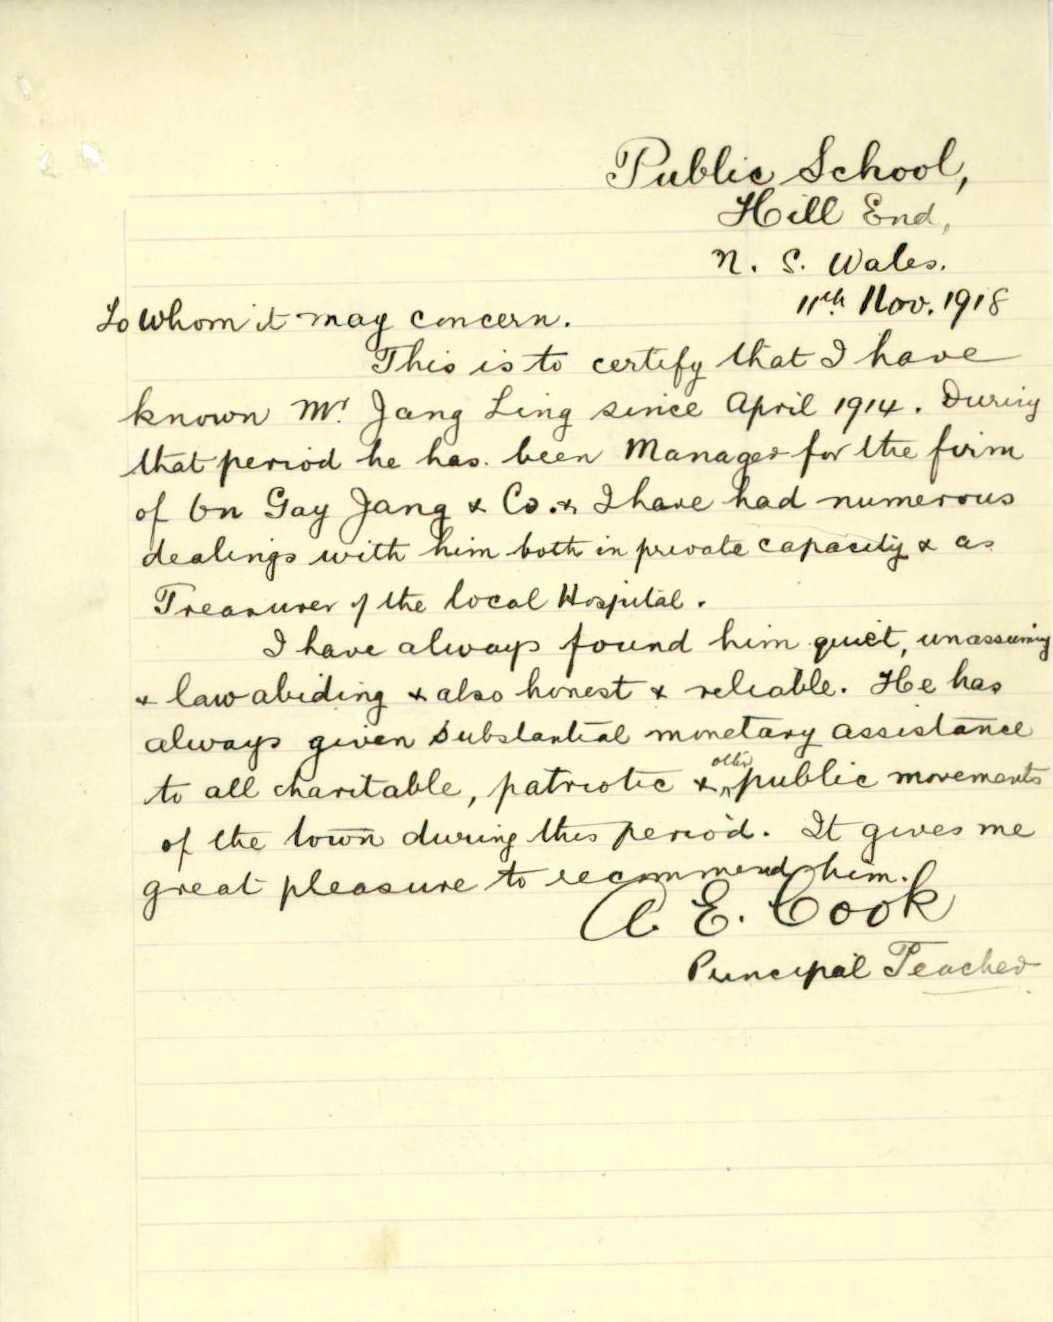 Public School,
Hill End,
N. S. Wales.
11th Nov. 1918
To Whom it may concern.
This is to certify that I have
known Mr. Jang Ling since April 1914. During
that period he has been Manager for the firm
of On Gay Jang & Co. & I have had numerous
dealings with him both in private capacity & as
Treasurer of the local Hospital.
I have always found him quiet, unassuming
& law abiding & also honest & reliable. He has
always given substantial monetary assistance
to all charitable, patriotic & other public movements
of the town during this period. It gives me
great pleasure to recommend him.
A E. Cook
Principal Teacher